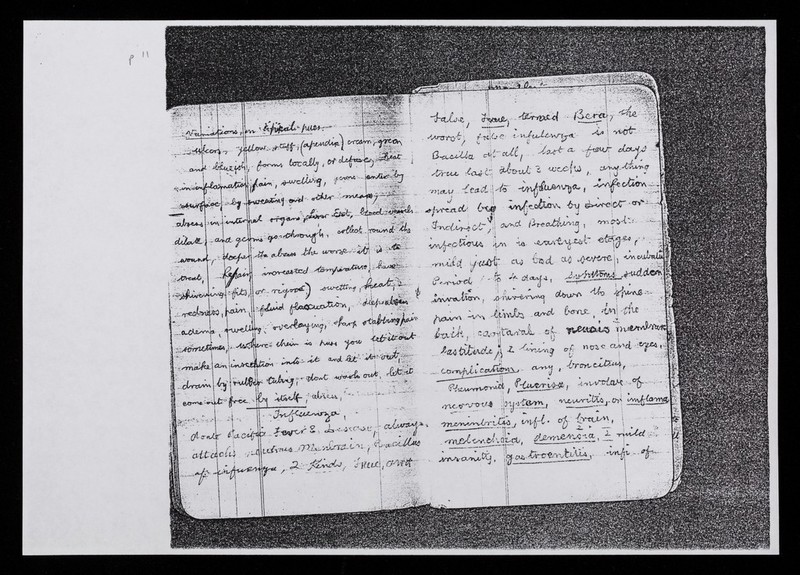 p 11
Variations, in tipikal pues.
yellow stuff, (apendix) cream, green
and blueish, forms locally, or defuse, heat
in inflamation pain, swelling, germs enter by
surface, by sweating and other means,
absess in internal organs, blood vessels
dilate, and germs go through, collect round the
wound, deeper the absess the worse it is to
treat, increased temperature, have
shivering fits, or rigors) swelling, heat,
redness, pain, fluid
odema, swelling, overlaying, sharp stabbing pain
sometimes, where their is pues you let it out
make an insection into it and let it out,
drain by rubber tubing, dont wash out, let it
come out free by itself,
Influenza,
Fever & always
attacks Bacillus
of infuenza, 2 Kinds, True, and
false, True, termed Bera, the
worst, false infulenza is not
Basilla at all, last a few days
true last about 2 weeks, any thing
may lead to influenza, infection
spread by infection by direct or
Indirect, and Breathing, most
infectious in is earlyest stages,
mild just as bad as severe,
Period days, sudden
invation, shivering down the spine
pain in limbs and bone, in the
back, of
& lining of nose and eyes,
complications, any, broncitus,
Pheumonia, Plurisie, involve of
nervous system, neuritis, or
infl. of brain,
demensia, mild
insanity, gastroentitis, infl of